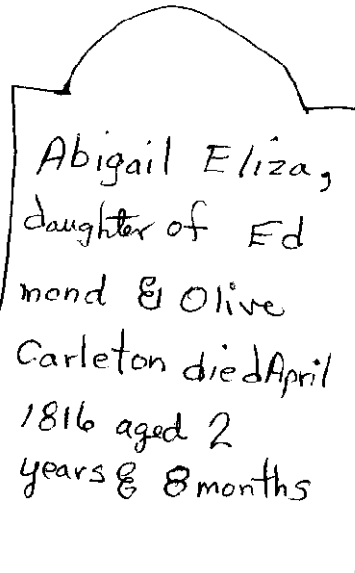 Abigail Eliza,
daughter of Ed
mond & Olive
Carleton died April
1816 aged 2
years & 8 months